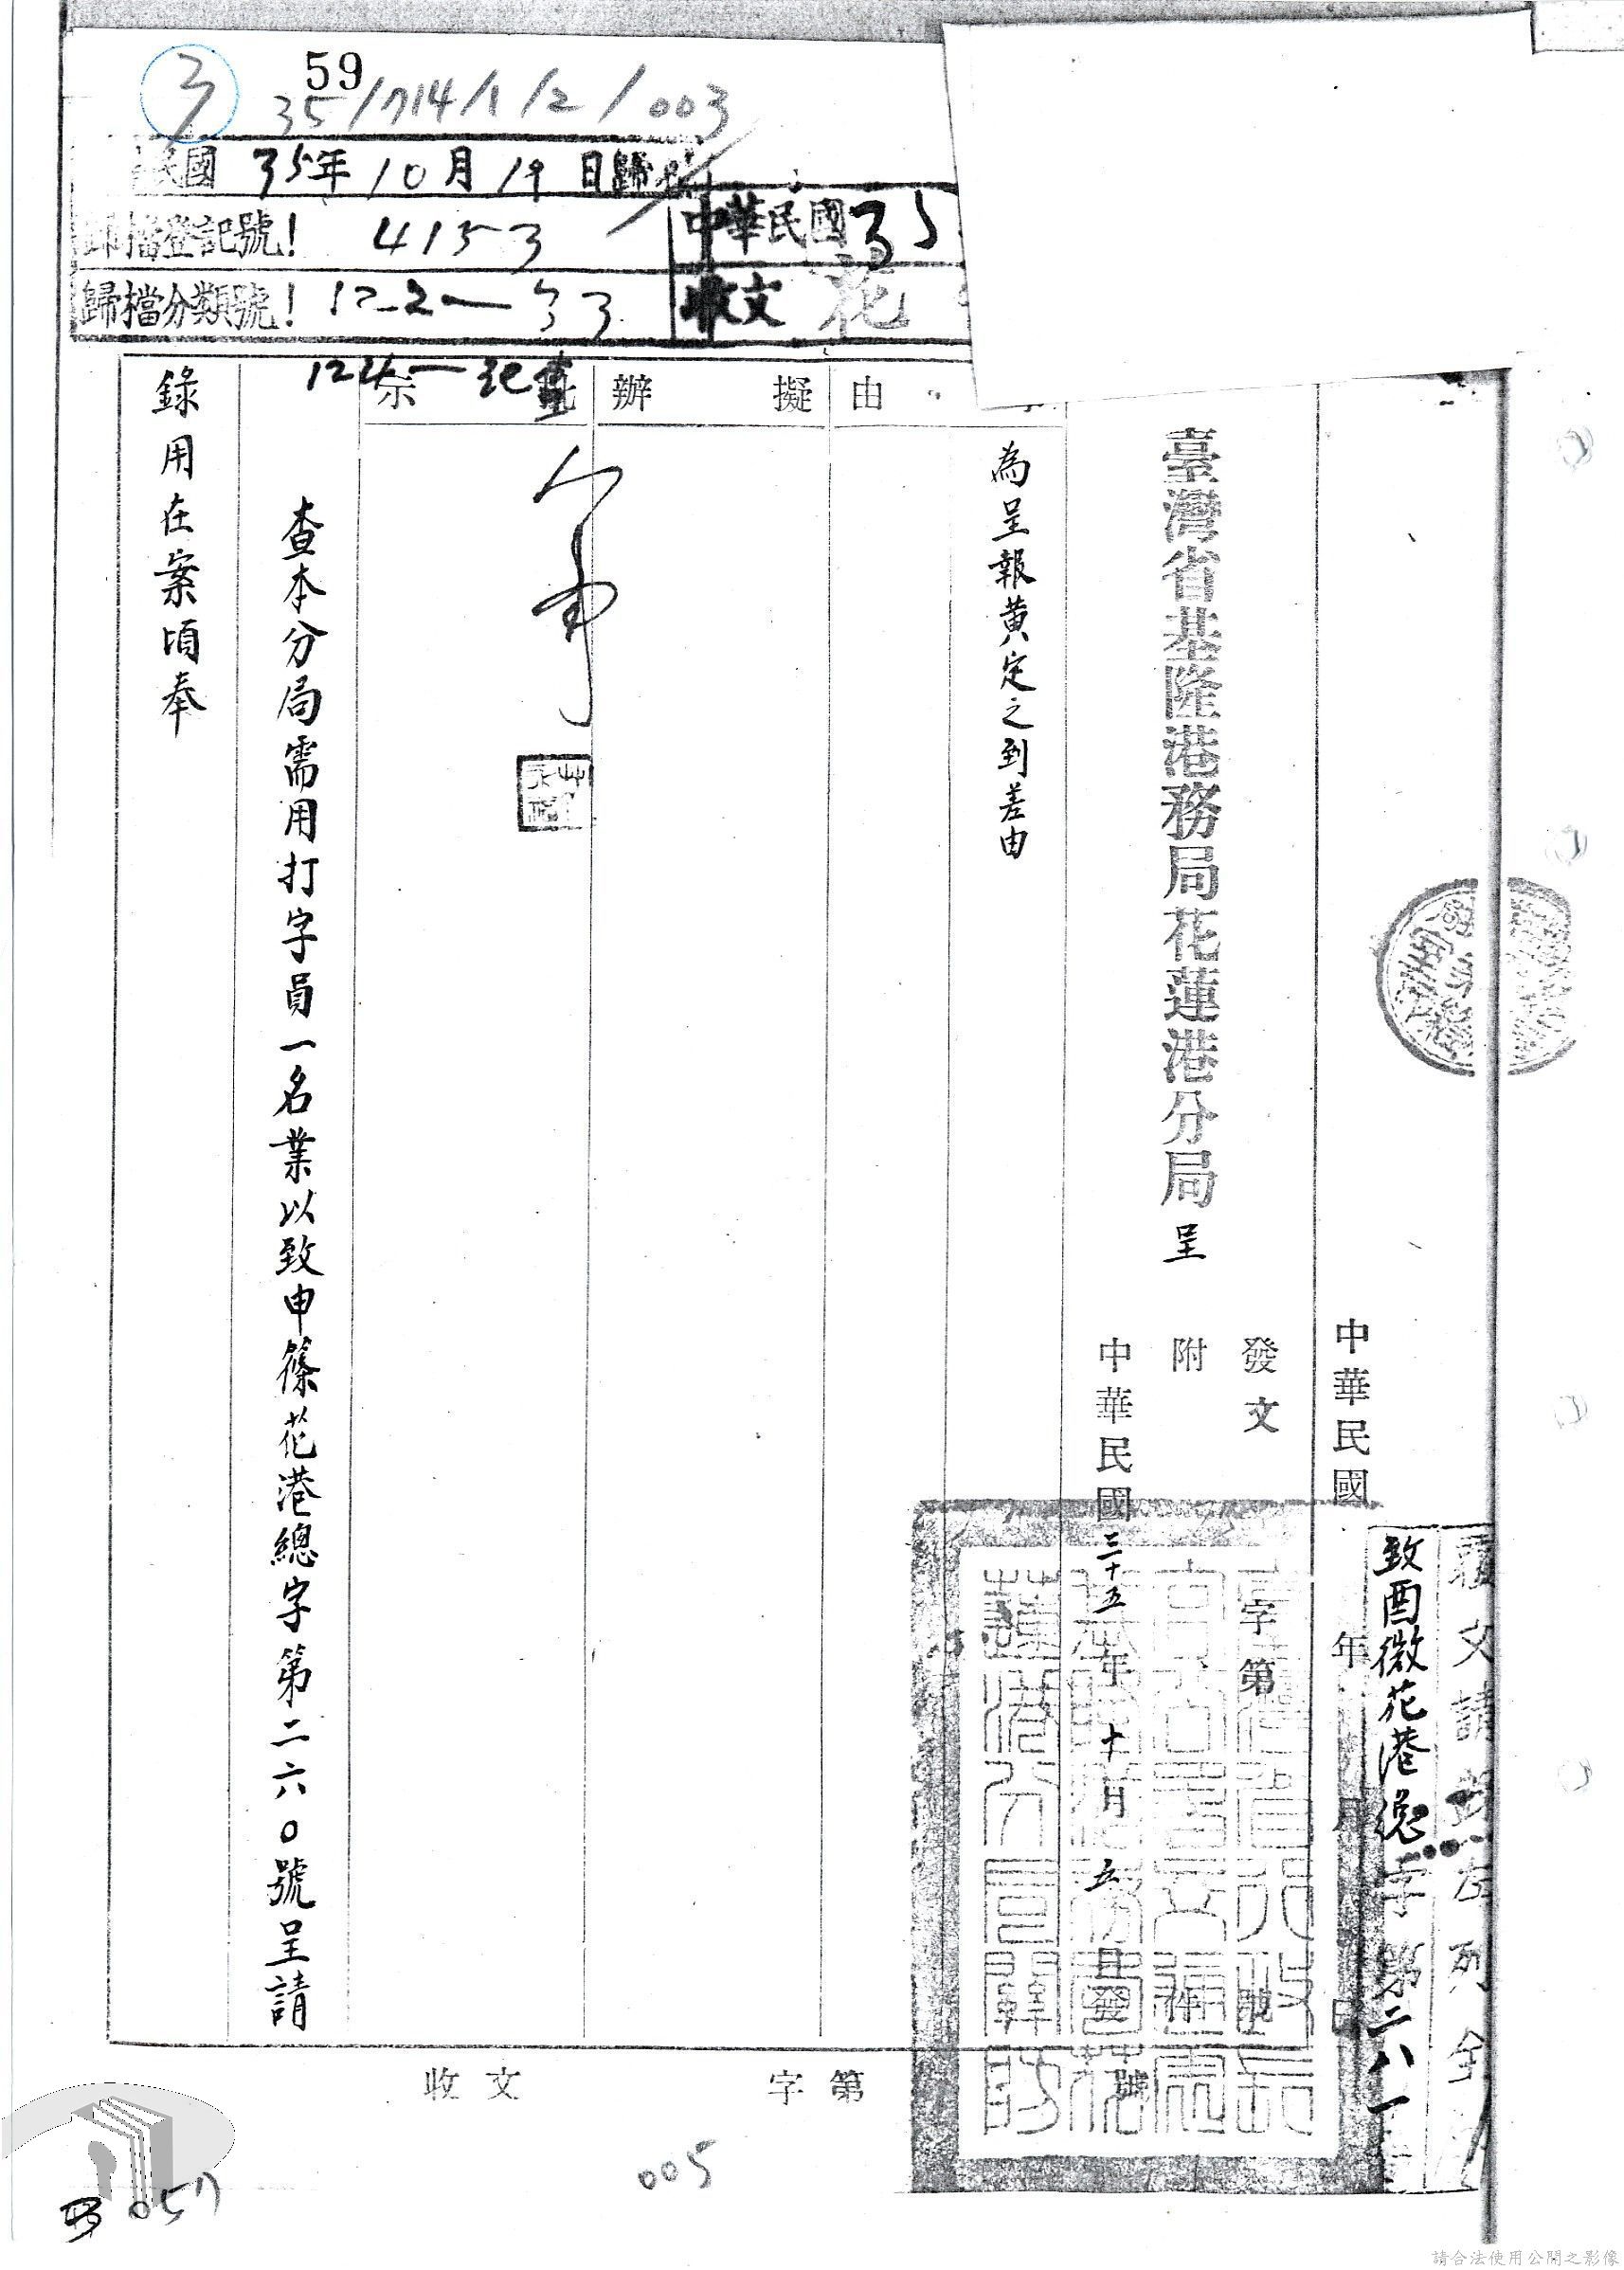 59
35/714/1/2/003
民國 35年 10月 19日歸檔
歸檔登記號! 4153
歸檔分類號! 122-33
124-紀
中華民國35
收文 花
覆文請
左列全
致酉微花港總字第二八一
中華民國 年 月 日
發文 字第 號
附 件
臺灣省基隆港務局花蓮港分局 呈
中華民國三十五年十月五日發
由
擬辦
批示
為呈報黃定之到差由
查本分局需用打字員一名業以致申篠花港總字第二六〇號呈請
錄用在案頃奉
收文 字第 號
005
057
請合法使用公開之影像